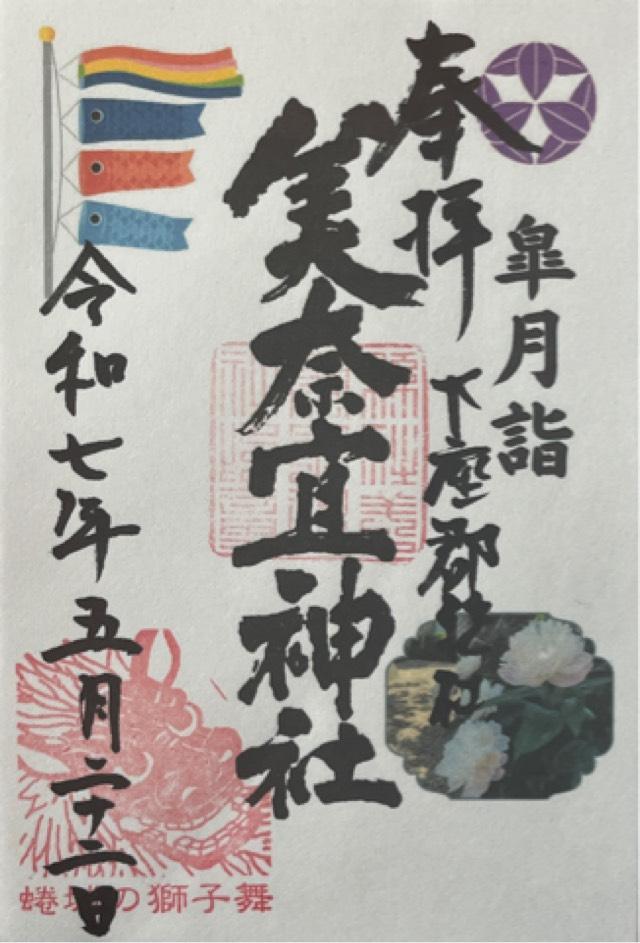 皐月詣
奉拝
下座郡惣社
美奈宜神社
令和七年五月二十二日
蜷城の獅子舞